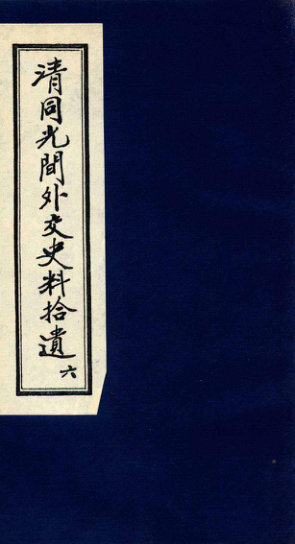 清同光間外交史料拾遺
六